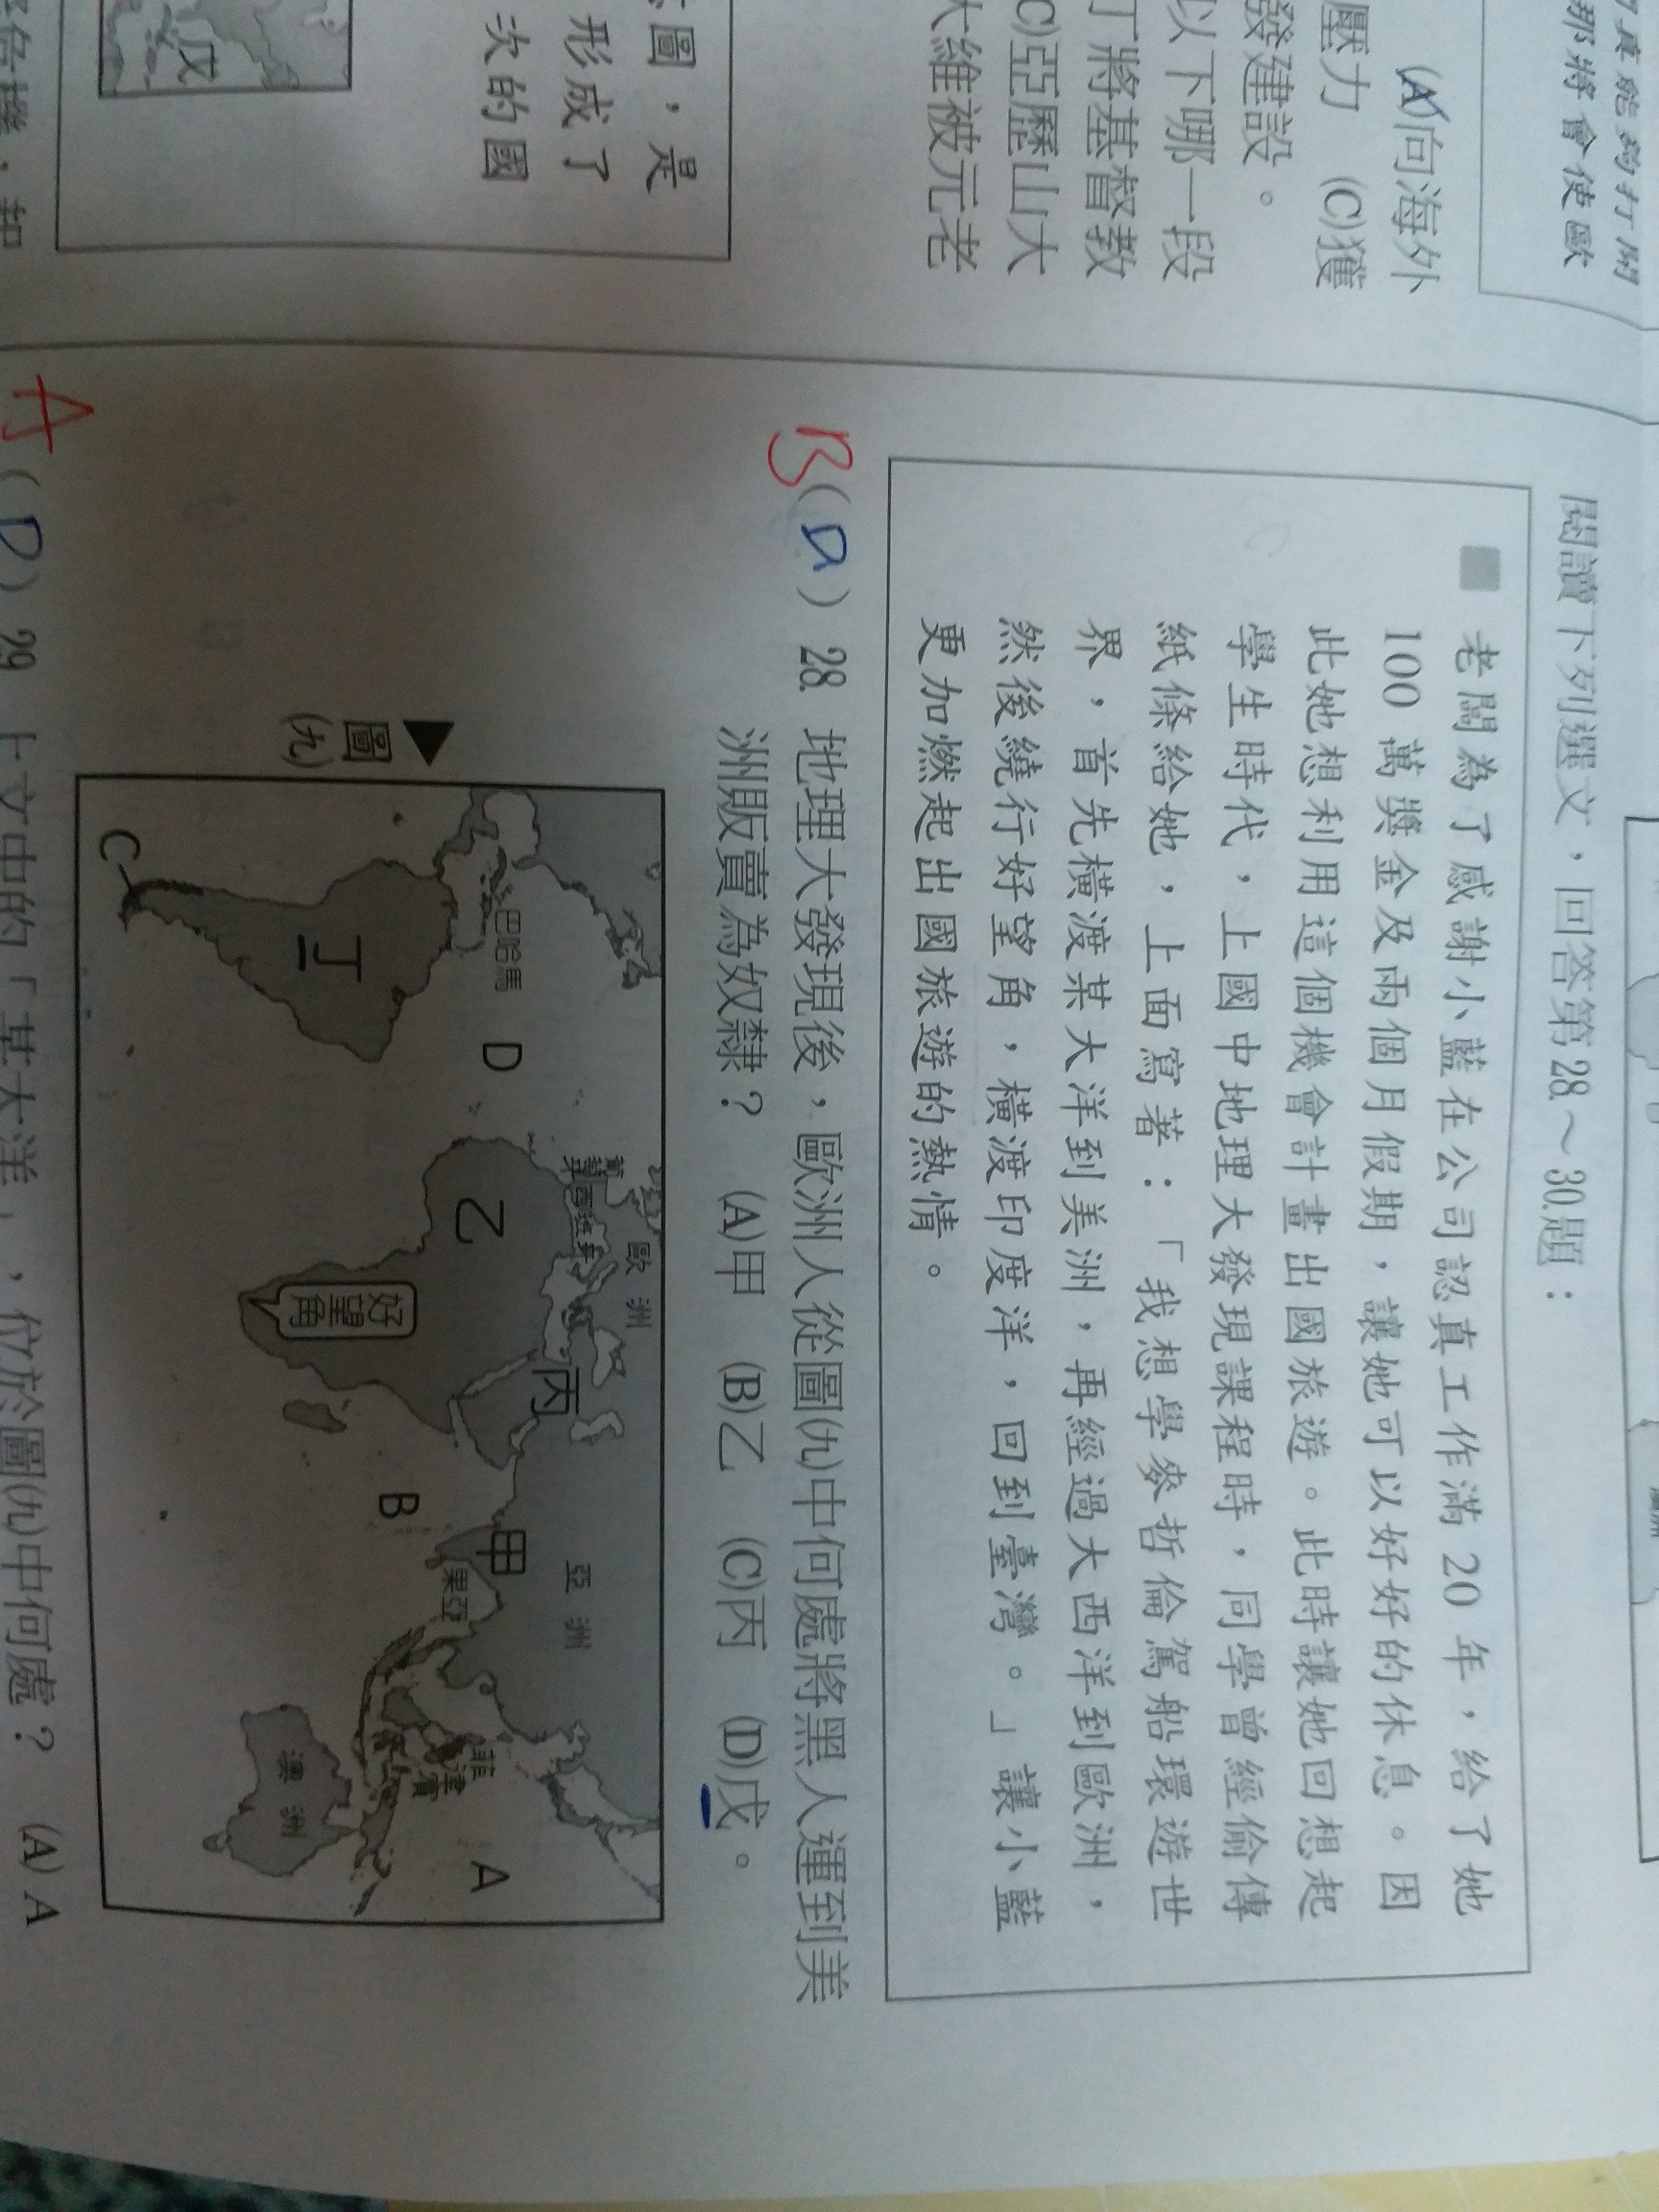 真能夠打開
那將會使歐
(A)向海外
壓力　(C)獲
發建設。
以下哪一段
丁將基督教
(C)亞歷山大
大維被元老
圖，是
形成了
次的國
戊
閱讀下列選文，回答第28.～30.題：
老闆為了感謝小藍在公司認真工作滿 20 年，給了她
100 萬獎金及兩個月假期，讓她可以好好的休息。因
此她想利用這個機會計畫出國旅遊。此時讓她回想起
學生時代，上國中地理大發現課程時，同學曾經偷傳
紙條給她，上面寫著：「我想學麥哲倫駕船環遊世
界，首先橫渡某大洋到美洲，再經過大西洋到歐洲，
然後繞行好望角，橫渡印度洋，回到臺灣。」讓小藍
更加燃起出國旅遊的熱情。
B
(D) 28. 地理大發現後，歐洲人從圖(九)中何處將黑人運到美
洲販賣為奴隸？　(A)甲　(B)乙　(C)丙　(D)戊。
歐洲
亞洲
葡萄牙
西班牙
丙
巴哈馬
D
乙
甲
果亞
菲律賓
A
丁
好望角
B
澳洲
C
▲圖(九)
A
(D) 29. 上文中的「某大洋」，位於圖(九)中何處？　(A) A